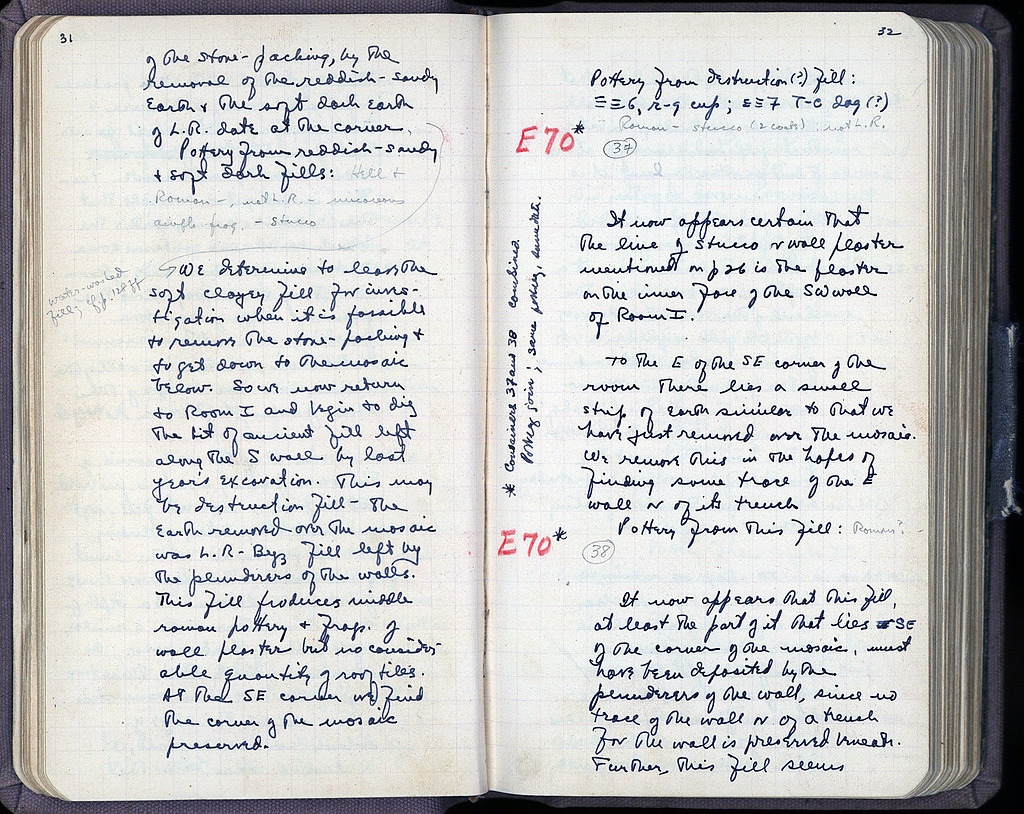 31
of the stone-packing, by the
removal of the reddish-sandy
Earth & the soft dark Earth
of L.R. date at the corner.
Pottery from reddish-sandy
& soft dark fills: Hell &
Roman -, not L.R. - numerous
single frag. - stucco
We determine to leave the
soft clayey fill for inves-
tigation when it is possible
to remove the stone-packing &
to get down to the mosaic
below. So we now return
to Room I and begin to dig
the bit of ancient fill left
along the S wall by last
year's excavation. This may
be destruction fill - the
Earth removed over the mosaic
was L.R.-Byz fill left by
the plunderers of the walls.
This fill produces middle
roman pottery & frags. of
wall plaster but no consider-
able quantity of roof tiles.
At the SE corner we find
the corner of the mosaic
preserved.
water-washed
fill, cf p. 128 ff
32
Pottery from destruction(?) fill:
ΞΞ6, r-g cup; ΞΞ7 T-c dog(?)
Roman - stucco (2 coats); not L.R.
E 70*
37
It now appears certain that
the line of stucco & wall plaster
mentioned on p 26 is the plaster
on the inner face of the SW wall
of Room I.
To the E of the SE corner of the
room there lies a small
strip of earth similar to that we
have just removed over the mosaic.
We remove this in the hopes of
finding some trace of the E
wall or of its trench
Pottery from this fill: Roman?
E 70*
38
It now appears that this fill,
at least the part of it that lies SE
of the corner of the mosaic, must
have been deposited by the
plunderers of the wall, since no
trace of the wall or of a trench
for the wall is preserved beneath.
Further, this fill seems
* Containers 37 and 38 combined.
Pottery joins; same pottery, same date.